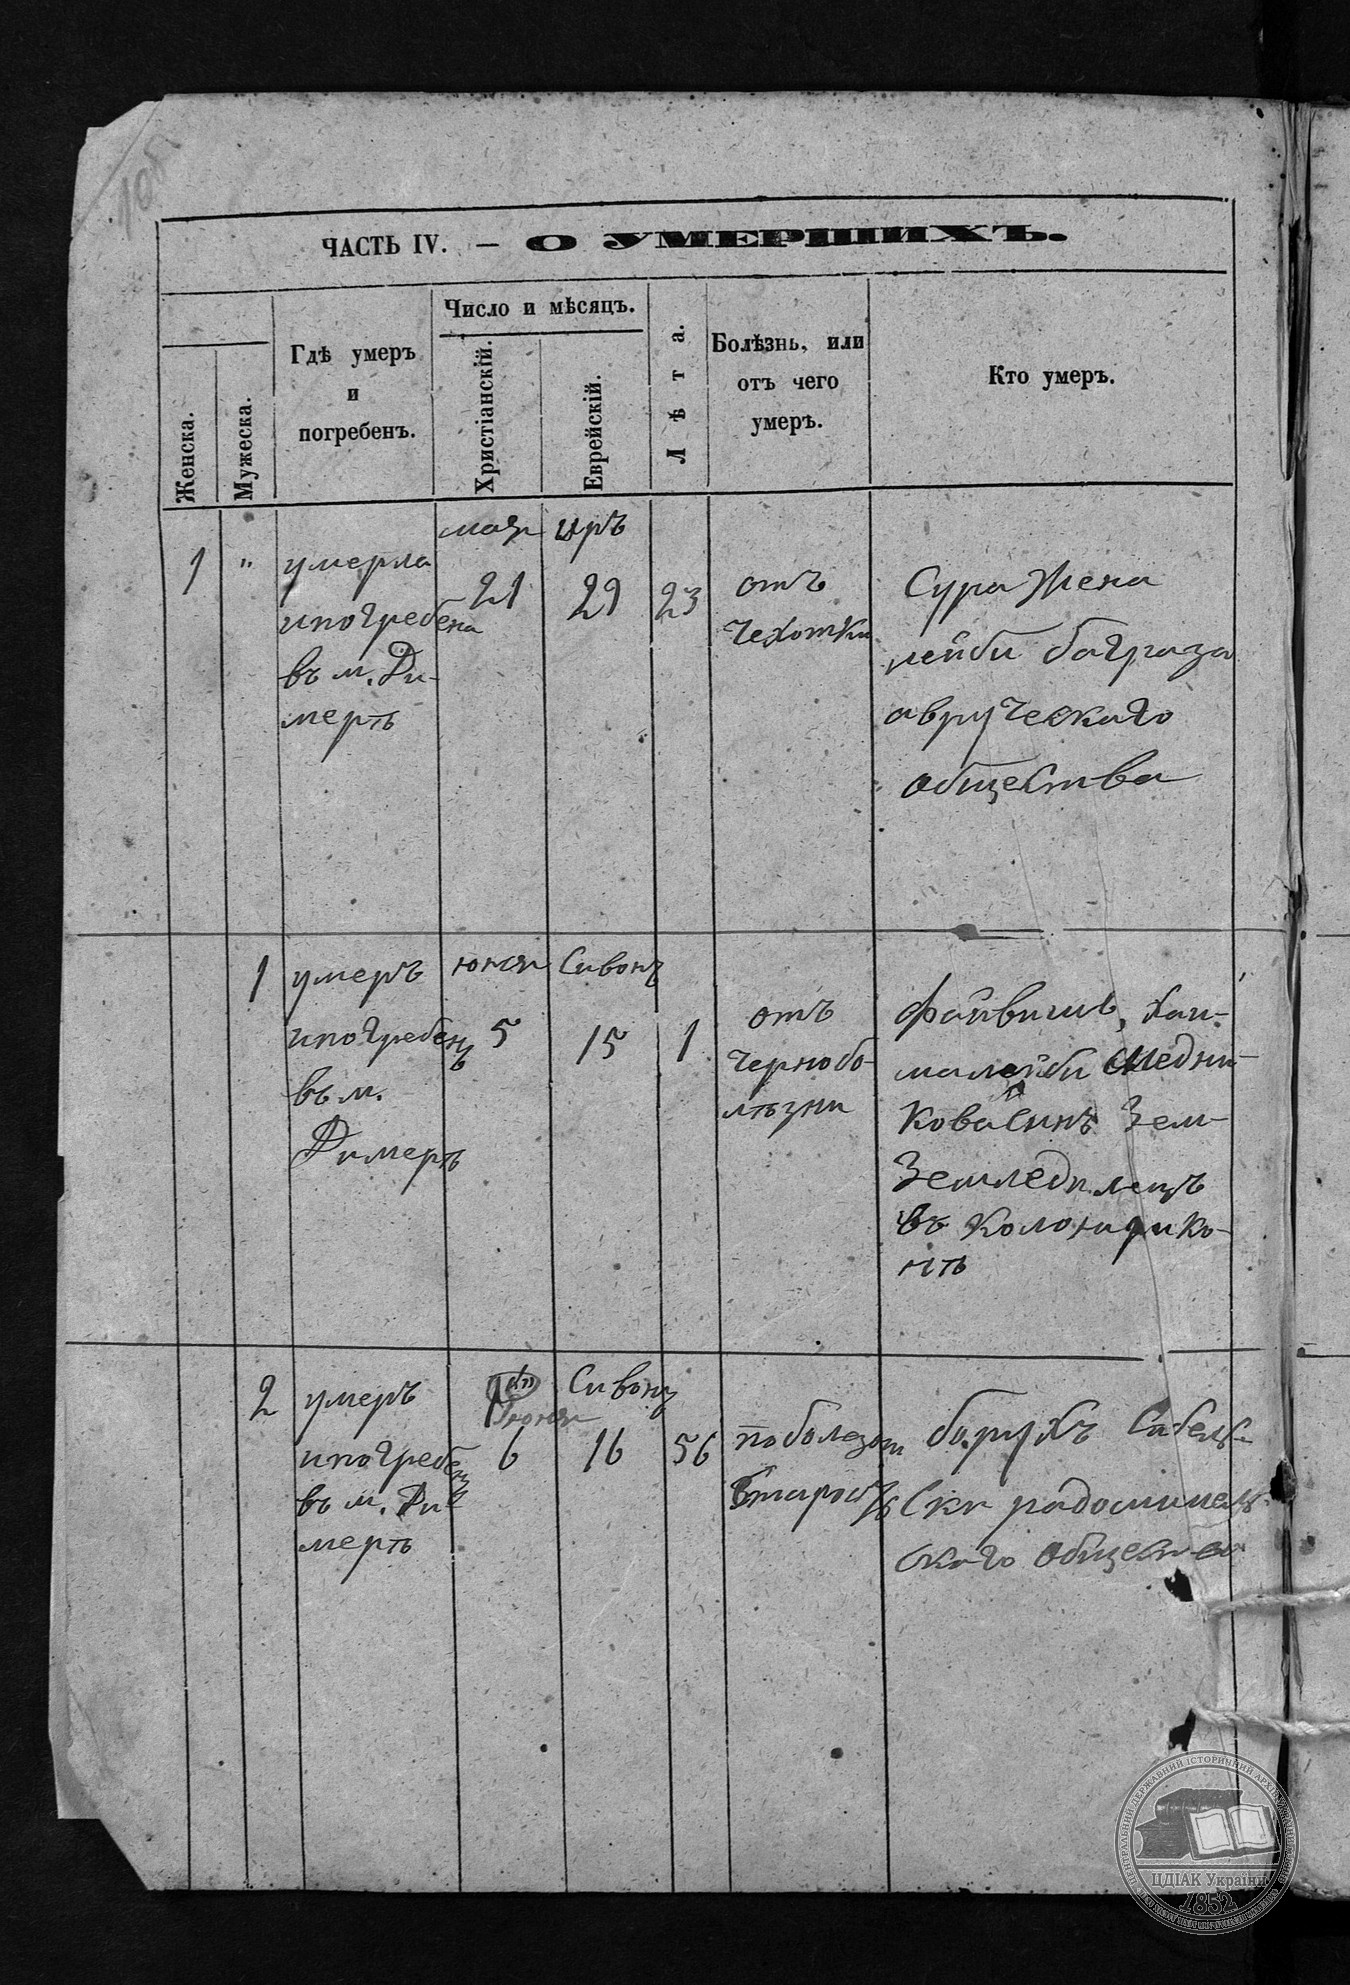 ЧАСТЬ IV. — О УМЕРШИХЪ.
Женска.
Мужеска.
Гдѣ умеръ
и
погребенъ.
Число и мѣсяцъ.
Христіанскій.
Еврейскій.
Лѣта.
Болѣзнь, или
отъ чего
умеръ.
Кто умеръ.
1
"
умерла
ипогребена
въ м. Ди-
мерть
мая
21
иръ
29
23
отъ
чехотки
Сура жена
лейби баграза
авруческаго
общества
1
умеръ
ипогребенъ
въ м.
Димерть
юнея
5
Сивонъ
15
1
отъ
чернобо-
лѣзни
Файвишъ, Хаи-
малейби Медни-
кова Синъ Зем-
Земледилецъ
въ Колонирико-
нть
2
умеръ
ипогребенъ
въ м. Ди
мерть
Июня
6
Сивонъ
16
56
поболезни
Старость
борухъ Сабель-
Ски радомисель-
скаго общества
ЦЕНТРАЛЬНИЙ ДЕРЖАВНИЙ ІСТОРИЧНИЙ АРХІВ УКРАЇНИ
ЦДІАК України
1852